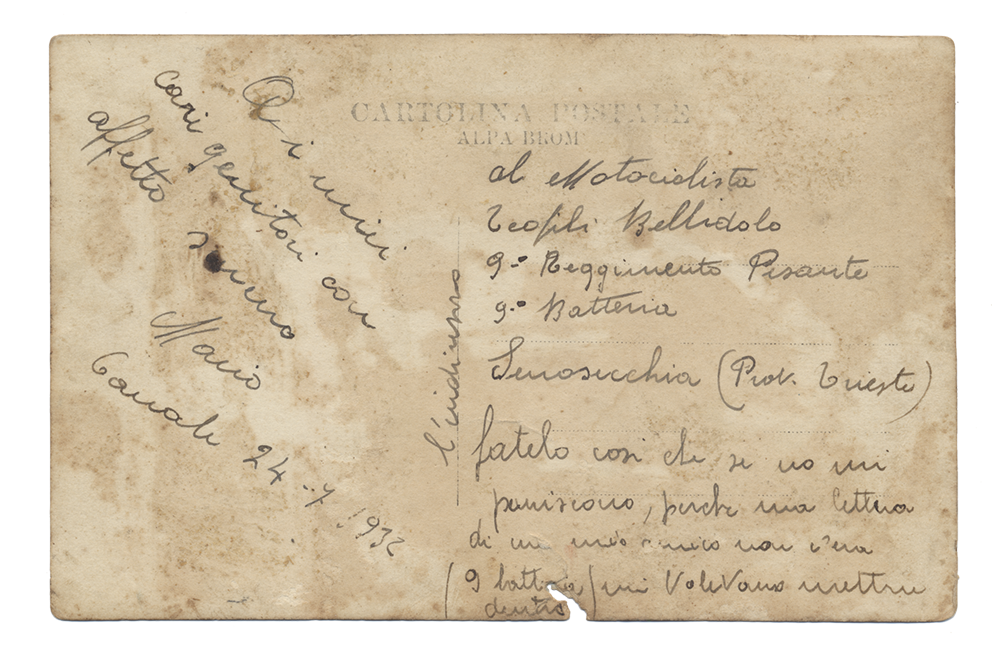 CARTOLINA POSTALE
ALPA BROM
Ai miei
cari genitori con
affetto
Mario
24-7-1932
l'indirizzo
al Motociclista
Teofili Bellidolo
9° Reggimento Pesante
9° Batteria
Senosecchia (Prov. Trieste)
fatelo così che se no mi
puniscono, perche una lettera
di un mio amico non c'era
(9 batteria) mi volevano mettere
dentro